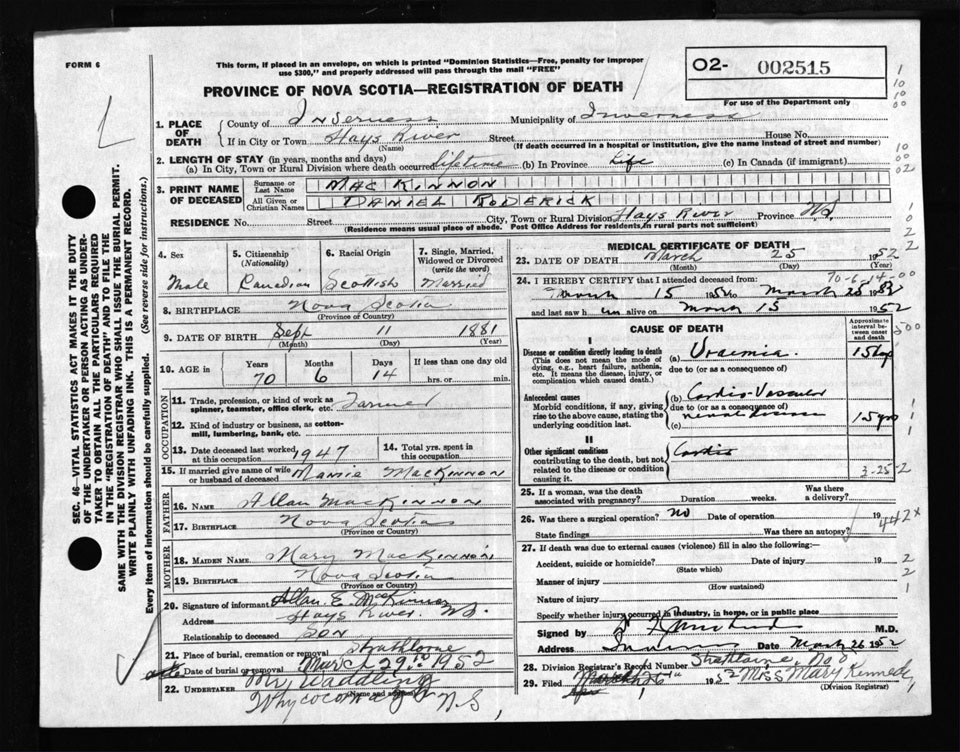 FORM 6
This form, if placed in an envelope, on which is printed "Dominion Statistics—Free, penalty for improper
use $300," and properly addressed will pass through the mail "FREE"
O2- 002515
For use of the Department only
PROVINCE OF NOVA SCOTIA—REGISTRATION OF DEATH
1. PLACE OF DEATH
County of Inverness Municipality of Inverness
If in City or Town Hays River Street House No.
(Name) (If death occurred in a hospital or institution, give the name instead of street and number)
2. LENGTH OF STAY (in years, months and days)
(a) In City, Town or Rural Division where death occurred lifetime (b) In Province Life (c) In Canada (if immigrant)
3. PRINT NAME OF DECEASED
Surname or Last Name MAC KINNON
All Given or Christian Names DANIEL RODERICK
RESIDENCE No. Street City, Town or Rural Division Hays River Province NS.
(Residence means usual place of abode. Post Office Address for residents in rural parts not sufficient)
4. Sex Male
5. Citizenship (Nationality) Canadian
6. Racial Origin Scottish
7. Single, Married, Widowed or Divorced (write the word) Married
8. BIRTHPLACE Nova Scotia
(Province or Country)
9. DATE OF BIRTH Sept 11 1881
(Month) (Day) (Year)
10. AGE in Years Months Days If less than one day old
70 6 14 hrs. or min.
OCCUPATION
11. Trade, profession, or kind of work as spinner, teamster, office clerk, etc. Farmer
12. Kind of industry or business, as cotton-mill, lumbering, bank, etc.
13. Date deceased last worked at this occupation 1947
14. Total yrs. spent in this occupation
15. If married give name of wife or husband of deceased Mamie MacKinnon
FATHER
16. NAME Allan MacKinnon
17. BIRTHPLACE Nova Scotia
(Province or Country)
MOTHER
18. MAIDEN NAME Mary MacKinnon
19. BIRTHPLACE Nova Scotia
(Province or Country)
20. Signature of informant Allan E. MacKinnon
Address Hays River, NS.
Relationship to deceased Son
21. Place of burial, cremation or removal Strathlorne
Date of burial or removal March 29th 1952
22. UNDERTAKER Waddling
(Name and address)
Whycocomagh N.S
MEDICAL CERTIFICATE OF DEATH
23. DATE OF DEATH March 25 1952
(Month) (Day) (Year)
70-6-14-00
24. I HEREBY CERTIFY that I attended deceased from:
March 15 1952 to March 25 1952
and last saw him alive on March 15 1952
CAUSE OF DEATH
Approximate interval between onset and death
I
Disease or condition directly leading to death
(This does not mean the mode of dying, e.g., heart failure, asthenia, etc. It means the disease, injury, or complication which caused death.)
(a) Uraemia. 15 days
due to (or as a consequence of)
Antecedent causes
Morbid conditions, if any, giving rise to the above cause, stating the underlying condition last.
(b) Cardio-Vascular
due to (or as a consequence of)
renal disease 15 yrs
(c)
II
Other significant conditions
contributing to the death, but not related to the disease or condition causing it.
Cardio
3-25-2
25. If a woman, was the death associated with pregnancy? Duration weeks. Was there a delivery?
26. Was there a surgical operation? no Date of operation 19
State findings Was there an autopsy?
442x
27. If death was due to external causes (violence) fill in also the following:—
Accident, suicide or homicide? Date of injury 19
(State which)
Manner of injury
(How sustained)
Nature of injury
Specify whether injury occurred in industry, in home, or in public place
Signed by M.D.
Address Inverness Date March 26 1952
28. Division Registrar's Record Number
29. Filed 1952 Miss Mary Kennedy
(Division Registrar)
SEC. 46—VITAL STATISTICS ACT MAKES IT THE DUTY
OF THE UNDERTAKER OR PERSON ACTING AS UNDER-
TAKER TO OBTAIN ALL THE PARTICULARS REQUIRED
IN THE "REGISTRATION OF DEATH" AND TO FILE THE
SAME WITH THE DIVISION REGISTRAR WHO SHALL ISSUE THE BURIAL PERMIT.
WRITE PLAINLY WITH UNFADING INK. THIS IS A PERMANENT RECORD.
Every item of information should be carefully supplied. (See reverse side for instructions.)